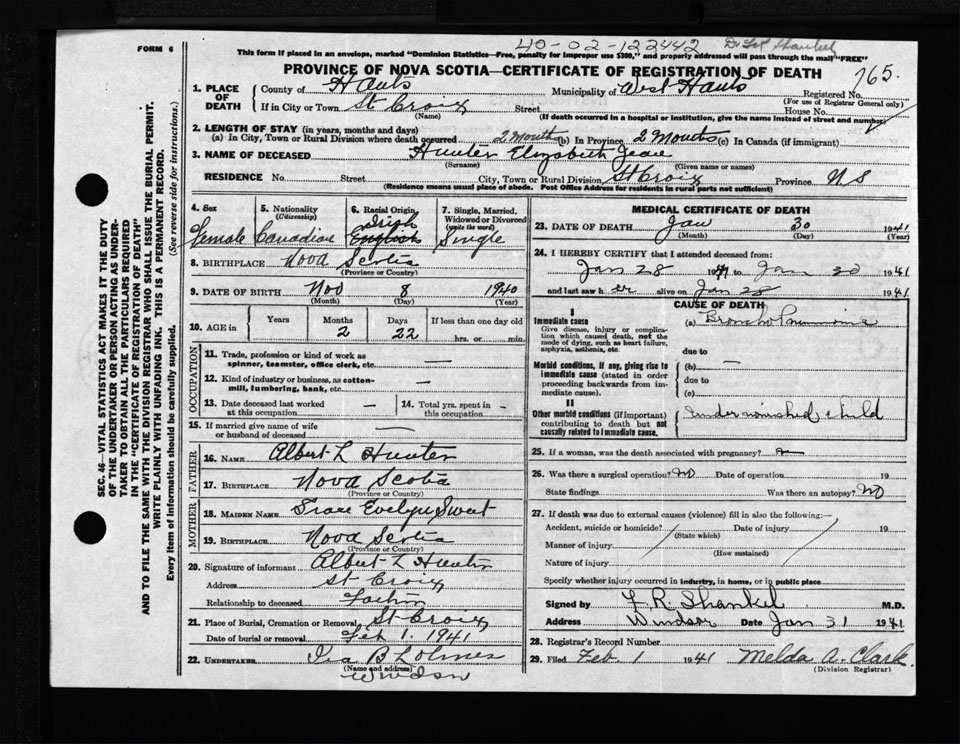 FORM 6
40-02-122442
This form if placed in an envelope, marked "Dominion Statistics—Free, penalty for improper use $300," and properly addressed will pass through the mail "FREE"
PROVINCE OF NOVA SCOTIA—CERTIFICATE OF REGISTRATION OF DEATH
765.
1. PLACE OF DEATH
County of Hants Municipality of West Hants Registered No.
(For use of Registrar General only)
If in City or Town St Croix Street House No.
(Name) (If death occurred in a hospital or institution, give the name instead of street and number)
2. LENGTH OF STAY (in years, months and days)
(a) In City, Town or Rural Division where death occurred 2 Months (b) In Province 2 Months (c) In Canada (if immigrant)
3. NAME OF DECEASED Hunter Elizabeth Jean
(Surname) (Given name or names)
RESIDENCE No. Street City, Town or Rural Division St Croix Province N S
(Residence means usual place of abode. Post Office Address for residents in rural parts not sufficient)
SEC. 46—VITAL STATISTICS ACT MAKES IT THE DUTY
OF THE UNDERTAKER OR PERSON ACTING AS UNDER-
TAKER TO OBTAIN ALL THE PARTICULARS REQUIRED
IN THE "CERTIFICATE OF REGISTRATION OF DEATH"
AND TO FILE THE SAME WITH THE DIVISION REGISTRAR WHO SHALL ISSUE THE BURIAL PERMIT.
WRITE PLAINLY WITH UNFADING INK. THIS IS A PERMANENT RECORD.
Every item of information should be carefully supplied. (See reverse side for instructions.)
4. Sex 5. Nationality (Citizenship) 6. Racial Origin 7. Single, Married, Widowed or Divorced (write the word)
Irish
Female Canadian English Single
8. BIRTHPLACE Nova Scotia
(Province or Country)
9. DATE OF BIRTH Nov 8 1940
(Month) (Day) (Year)
10. AGE in Years Months Days If less than one day old
2 22 hrs. or min.
OCCUPATION
11. Trade, profession or kind of work as
spinner, teamster, office clerk, etc. —
12. Kind of industry or business, as cotton-
mill, lumbering, bank, etc. —
13. Date deceased last worked at this occupation — 14. Total yrs. spent in this occupation -
15. If married give name of wife
or husband of deceased —
FATHER
16. NAME Albert L Hunter
17. BIRTHPLACE Nova Scotia
(Province or Country)
MOTHER
18. MAIDEN NAME Evelyn Sweet
19. BIRTHPLACE Nova Scotia
(Province or Country)
20. Signature of informant Albert L Hunter
Address St Croix
Relationship to deceased Father
21. Place of Burial, Cremation or Removal St Croix
Date of burial or removal Feb 1. 1941
22. UNDERTAKER Ira B
(Name and address)
Windsor
MEDICAL CERTIFICATE OF DEATH
23. DATE OF DEATH Jan 30 1941
(Month) (Day) (Year)
24. I HEREBY CERTIFY that I attended deceased from:
Jan 28 1941 to Jan 30 1941
and last saw her alive on Jan 28 1941
CAUSE OF DEATH
I
Immediate cause (a) Broncho Pneumonia
Give disease, injury or complica-
tion which caused death, not the
mode of dying, such as heart failure,
asphyxia, asthenia, etc.
due to
Morbid conditions, if any, giving rise to (b) —
immediate cause (stated in order due to
proceeding backwards from im-
mediate cause). (c)
II
Other morbid conditions (if important) undernourished child
contributing to death but not
causally related to immediate cause.
25. If a woman, was the death associated with pregnancy?
26. Was there a surgical operation? no Date of operation 19
State findings Was there an autopsy? NO
27. If death was due to external causes (violence) fill in also the following:—
Accident, suicide or homicide? Date of injury 19
(State which)
Manner of injury
(How sustained)
Nature of injury
Specify whether injury occurred in industry, in home, or in public place
Signed by F. R. Shankel M.D.
Address Windsor Date Jan 31 1941
28. Registrar's Record Number
29. Filed Feb 1 1941 Melda A. Clark.
(Division Registrar)